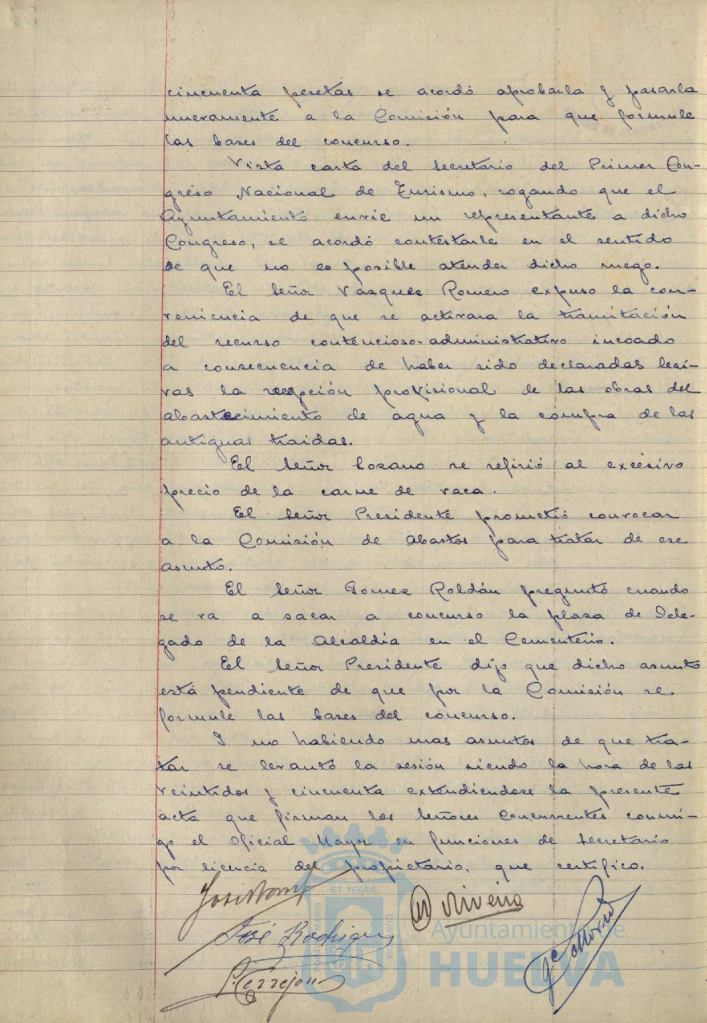 cincuenta pesetas se acordó aprobarla y pasarla
nuevamente a la Comisión para que formule
las bases del concurso.
Vista carta del Secretario del Primer Con-
greso Nacional de Turismo, rogando que el
Ayuntamiento envie un representante a dicho
Congreso, se acordó contestarle en el sentido
de que no es posible atender dicho ruego.
El Señor Vazquez Romero expuso la con-
veniencia de que se activara la tramitación
del recurso contencioso-administrativo incoado
a consecuencia de haber sido declaradas lesi-
vas la recepción provisional de las obras del
abastecimiento de agua y la compra de las
antiguas traidas.
El Señor Lozano se refirió al excesivo
precio de la carne de vaca.
El Señor Presidente prometió convocar
a la Comisión de Abastos para tratar de ese
asunto.
El Señor Gomez Roldán preguntó cuando
se va a sacar a concurso la plaza de Dele-
gado de la Alcaldia en el Cementerio.
El Señor Presidente dijo que dicho asunto
está pendiente de que por la Comisión se
formule las bases del concurso.
I no habiendo mas asuntos de que tra-
tar se levantó la sesión siendo la hora de las
veintidos y cincuenta extendiendose la presente
acta que firman los Señores Concurrentes conmi-
go el Oficial Mayor en funciones de Secretario
por licencia del propietario, que certifico.
José Rodriguez
P. Terrejon
Ayuntamiento de
HUELVA